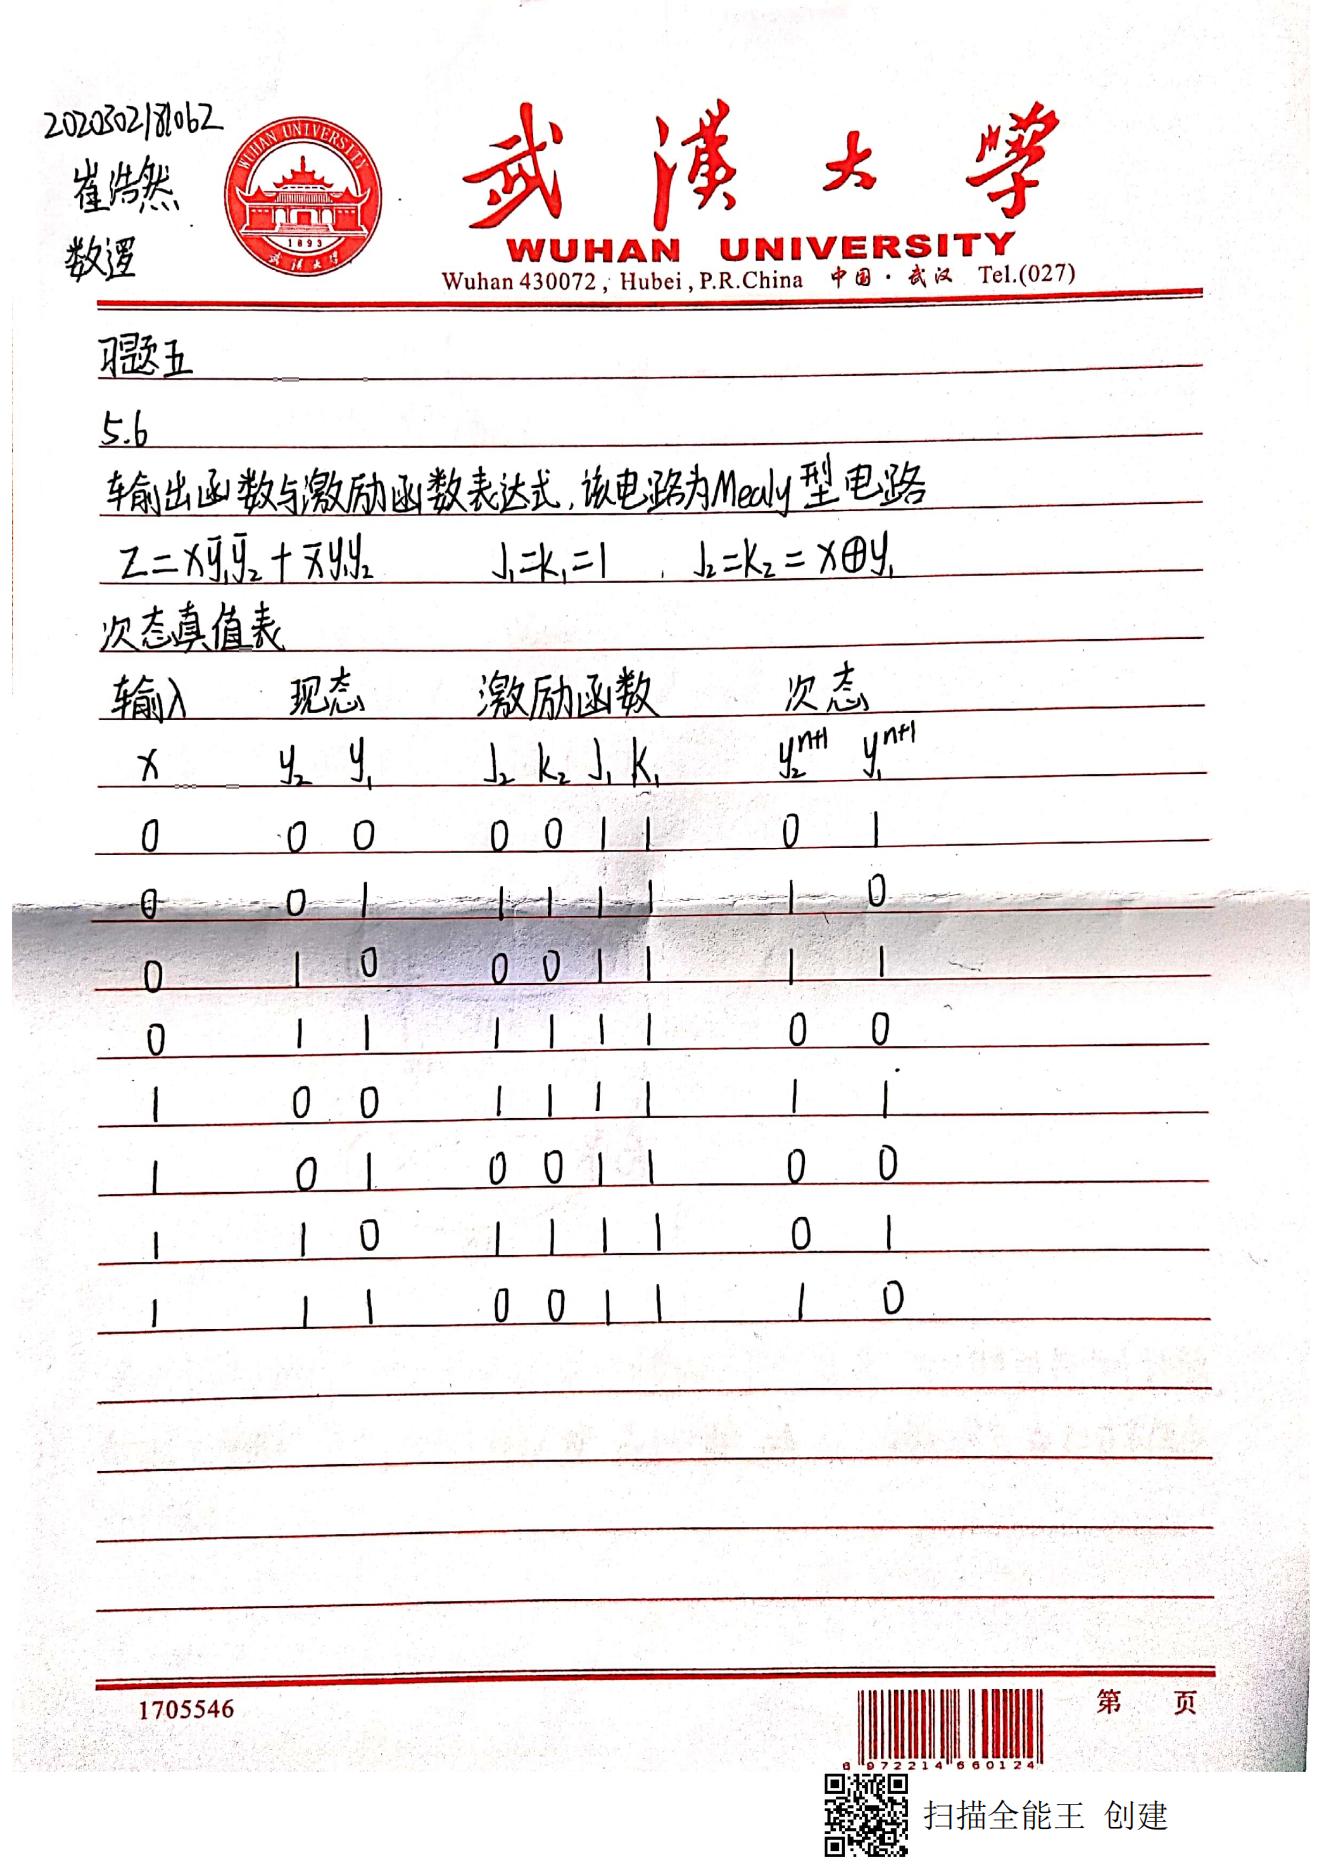 2020302181062
崔浩然
数逻
WUHAN UNIVERSITY
1893
武汉大学
武漢大學
WUHAN UNIVERSITY
Wuhan 430072, Hubei, P.R.China 中国·武汉 Tel.(027)
习题五
5.6
输出函数与激励函数表达式,该电路为Mealy型电路
Z=xȳ₁ȳ₂+x̄y₁y₂ J₁=K₁=1, J₂=K₂=x⊕y₁
次态真值表
输入 现态 激励函数 次态
x y₂ y₁ J₂ K₂ J₁ K₁ y₂ⁿ⁺¹ y₁ⁿ⁺¹
0 0 0 0 0 1 1 0 1
0 0 1 1 1 1 1 1 0
0 1 0 0 0 1 1 1 1
0 1 1 1 1 1 1 0 0
1 0 0 1 1 1 1 1 1
1 0 1 0 0 1 1 0 0
1 1 0 1 1 1 1 0 1
1 1 1 0 0 1 1 1 0
1705546
第 页
6 972214 660124
扫描全能王 创建